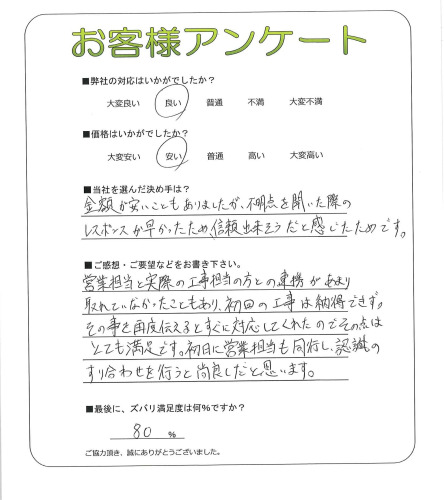 お客様アンケート
■弊社の対応はいかがでしたか?
大変良い 良い 普通 不満 大変不満
■価格はいかがでしたか?
大変安い 安い 普通 高い 大変高い
■当社を選んだ決め手は?
金額が安いこともありましたが、不明点を聞いた際の
レスポンスが早かったため、信頼出来そうだと感じたためです。
■ご感想・ご要望などをお書き下さい。
営業担当と実際の工事担当の方との連携があまり
取れていなかったこともあり、初回の工事は納得できず。
その事を再度伝えるとすぐに対応してくれたのでその点は
とても満足です。初日に営業担当も同行し、認識の
すり合わせを行うと尚良しだと思います。
■最後に、ズバリ満足度は何%ですか?
80 %
ご協力頂き、誠にありがとうございました。